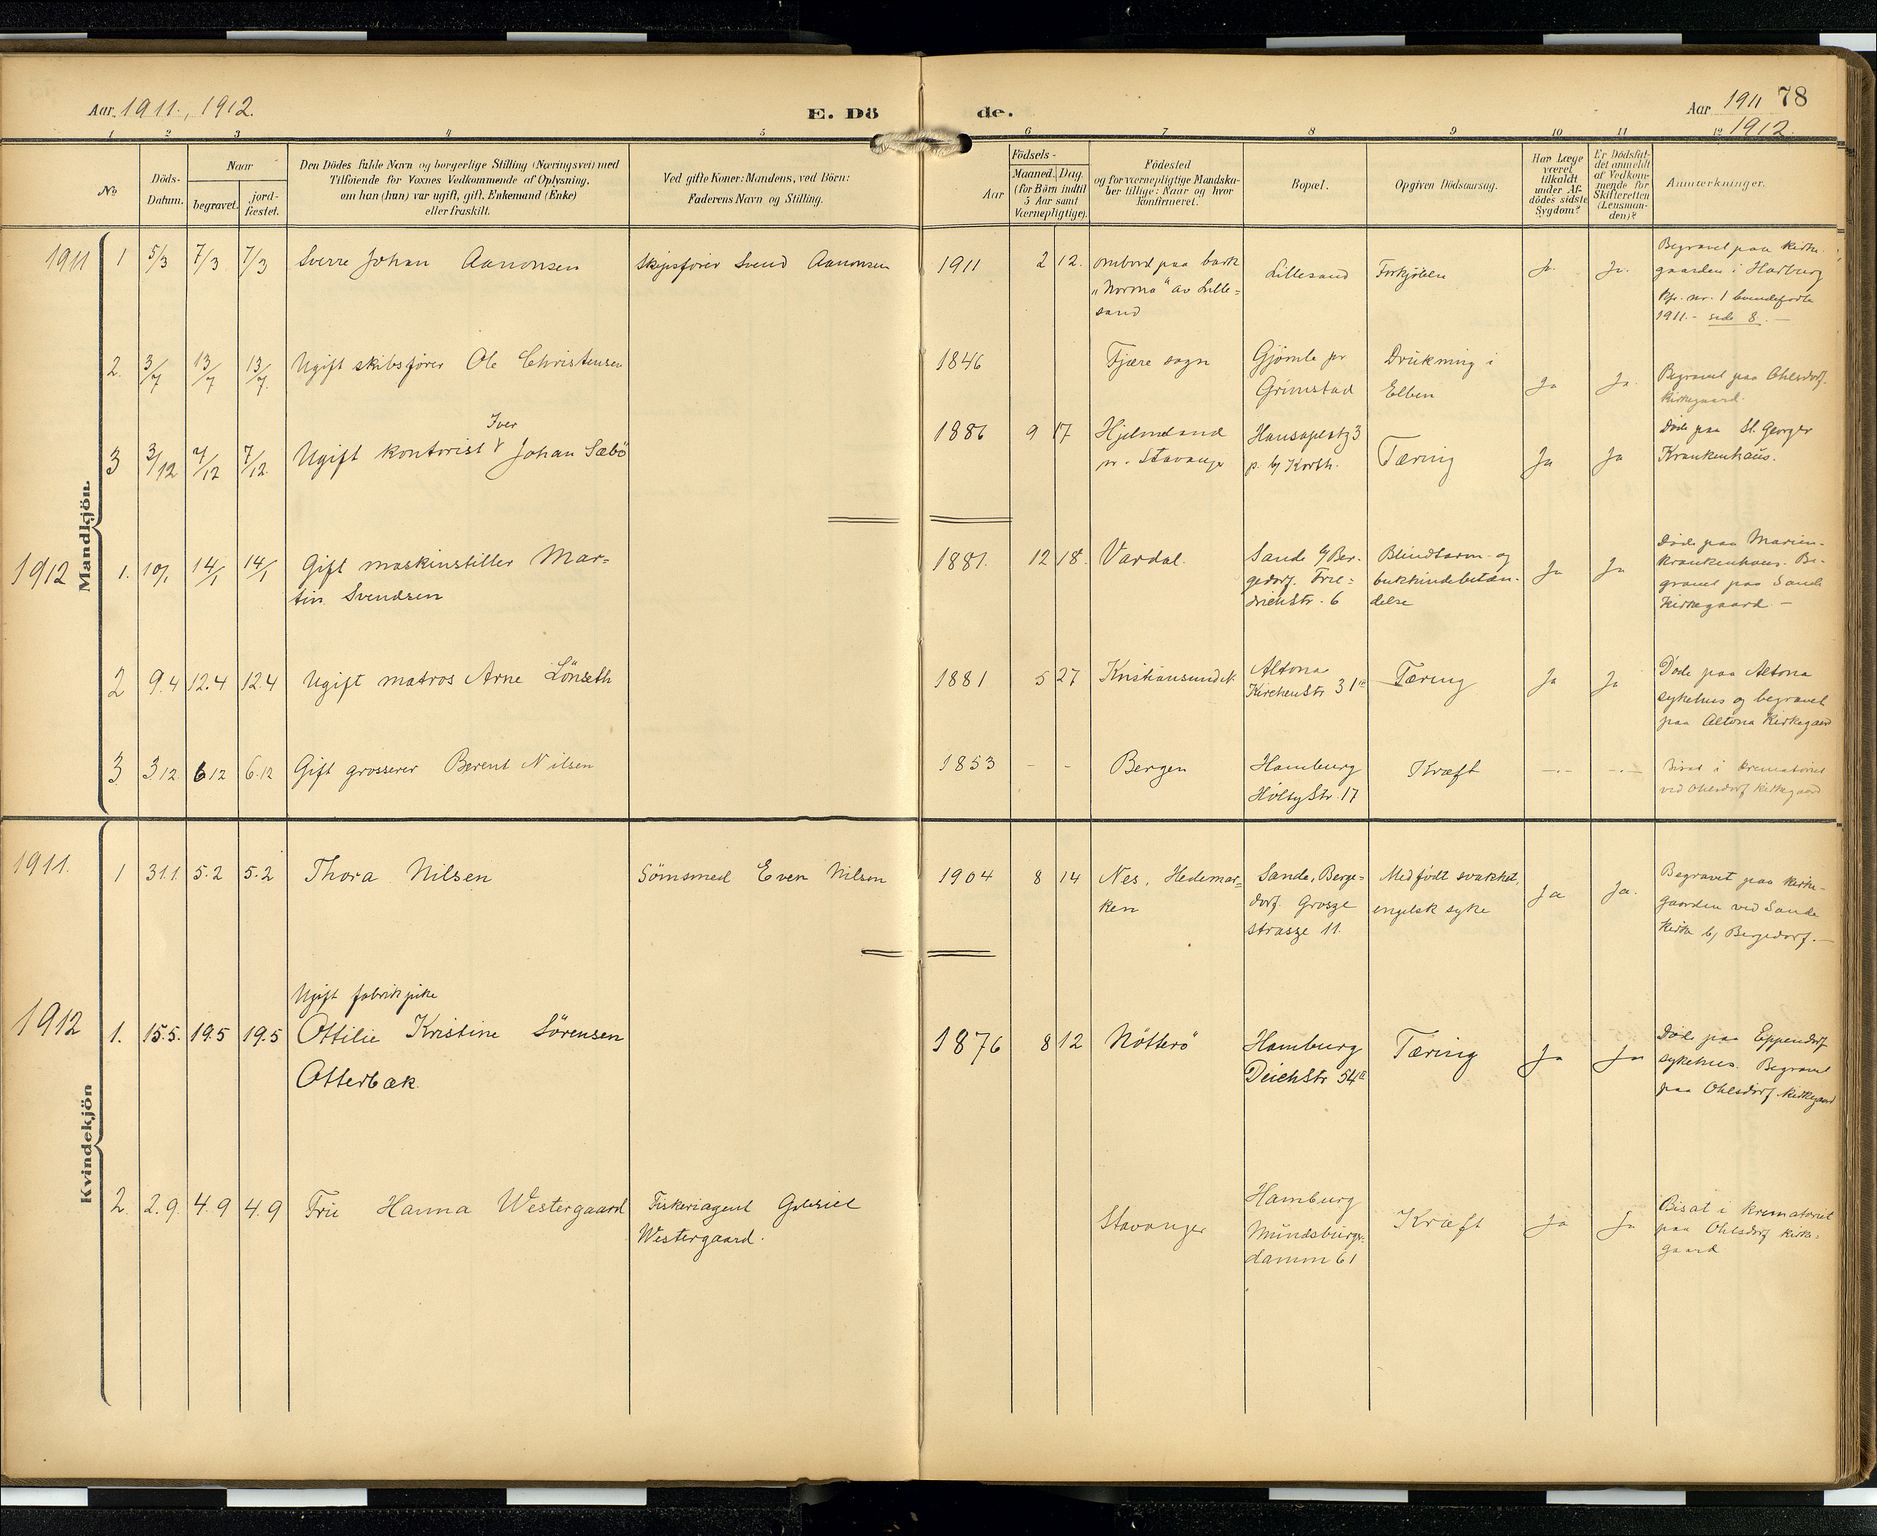 Aar 1911, 1912.
E. Dö de.
Aar 1911 78
1912.
1 2 3 4 5 6 7 8 9 10 11 12
No
Döds-
Datum.
Naar
begravet.
jord-
fæstet.
Den Dödes fulde Navn og borgerlige Stilling (Næringsvei) med
Tilföiende for Voxnes Vedkommende af Oplysning,
om han (hun) var ugift, gift, Enkemand (Enke)
eller fraskilt.
Ved gifte Koner: Mandens, ved Börn:
Faderens Navn og Stilling.
Födsels-
Aar
Maaned. Dag.
(for Börn indtil
5 Aar samt
Værnepligtige).
Födested
og for værnepligtige Mandska-
ber tillige: Naar og hvor
konfirmeret.
Bopæl.
Opgiven Dödsaarsag.
Har Læge
været
tilkaldt
under Af-
dödes sidste
Sygdom?
Er Dödsfal-
det anmeldt
af Vedkom-
mende for
Skifteretten
(Lensman-
den)?
Anmærkninger.
Mandkjön.
1911
1 5/3 7/3 7/3 Sverre Johan Aanonsen
Skipsfører Svend Aanonsen
1911 2 12. ombord paa bark
"Norma" av Lille-
sand
Lillesand
Forkjølelse
Ja. Ja.
Begravet paa kirke-
gaarden i Harburg
Kfr. nr. 1 levendefødte
1911. - side 8. -
2. 3/7 13/7 13/7. Ugift skibsfører Ole Christensen
1846
Fjære sogn
Gjömle pr
Grimstad
Drukning i
Elben
Ja Ja.
Begravet paa Ohlsdorf.
Kirkegaard.
3 3/12 7/12 7/12. Ugift kontorist Iver Johan Sæbö
1886 9 17
Hjelmeland
pr. Stavanger
Hansaplatz 3
p. b/ Korth.
Tæring
Ja Ja
Döde paa St. Georger
Krankenhaus.
1912
1. 10/1 14/1 14/1 Gift maskinstiller Mar-
tin Svendsen
1881. 12 18. Vardal.
Sande b/ Ber-
gedorf. Frie-
drichstr. 6
Blindtarm- og
bukhindebetæn-
delse
Ja Ja
Döde paa Marien-
krankenhaus. Be-
gravet paa Sande
Kirkegaard. -
2 9.4 12.4 12.4 Ugift matros Arne Lönseth
1881 5 27 Kristiansund N.
Altona
Kirchenstr. 31 II
Tæring
Ja Ja
Döde paa Altona
sykehus og begravet
paa Altona Kirkegaard
3 3.12 6.12 6.12 Gift grosserer Berent Nilsen
1853 - - Bergen
Hamburg
Höltystr. 17
Kræft
-.- -.-
Bisat i krematoriet
ved Ohlsdorf Kirkegaard
Kvindekjön
1911.
1 31.1 5.2 5.2 Thora Nilsen
Sömsmed Even Nilsen
1904 8 14 Nes, Hedemar-
ken
Sande, Berge-
dorf. Grosze
strasze 11.
Medfödt svakhet,
engelsk syke
Ja Ja.
Begravet paa kirke-
gaarden ved Sande
Kirke b/ Bergedorf. -
1912
Ugift fabrikpike
1. 15.5. 19.5 19.5 Ottilie Kristine Sörensen
Otterbæk.
1876 8 12 Nötterö
Hamburg
Deichstr 54 II
Tæring
Ja Ja
Döde paa Eppendorf
sykehus. Begravet
paa Ohlsdorf kirkegaard
2. 2.9. 4.9 4.9 Frie Hanna Westergaard
Fiskeriagent Gabriel
Westergaard.
Stavanger
Hamburg
Mundsburger-
damm 61
Kræft
Ja Ja
Bisat i krematoriet
paa Ohlsdorf kirke-
gaard